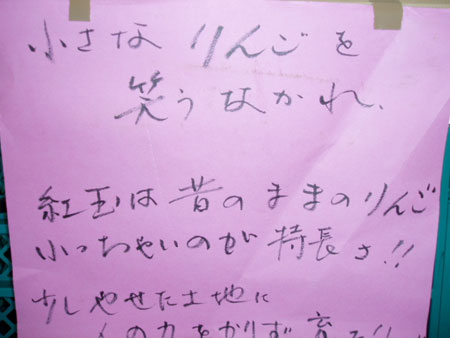 小さな りんごを
笑うなかれ、
紅玉は昔のままのりんご
小っちゃいのが 特長さ!!
少しやせた土地に
人の力をかりず 育つ